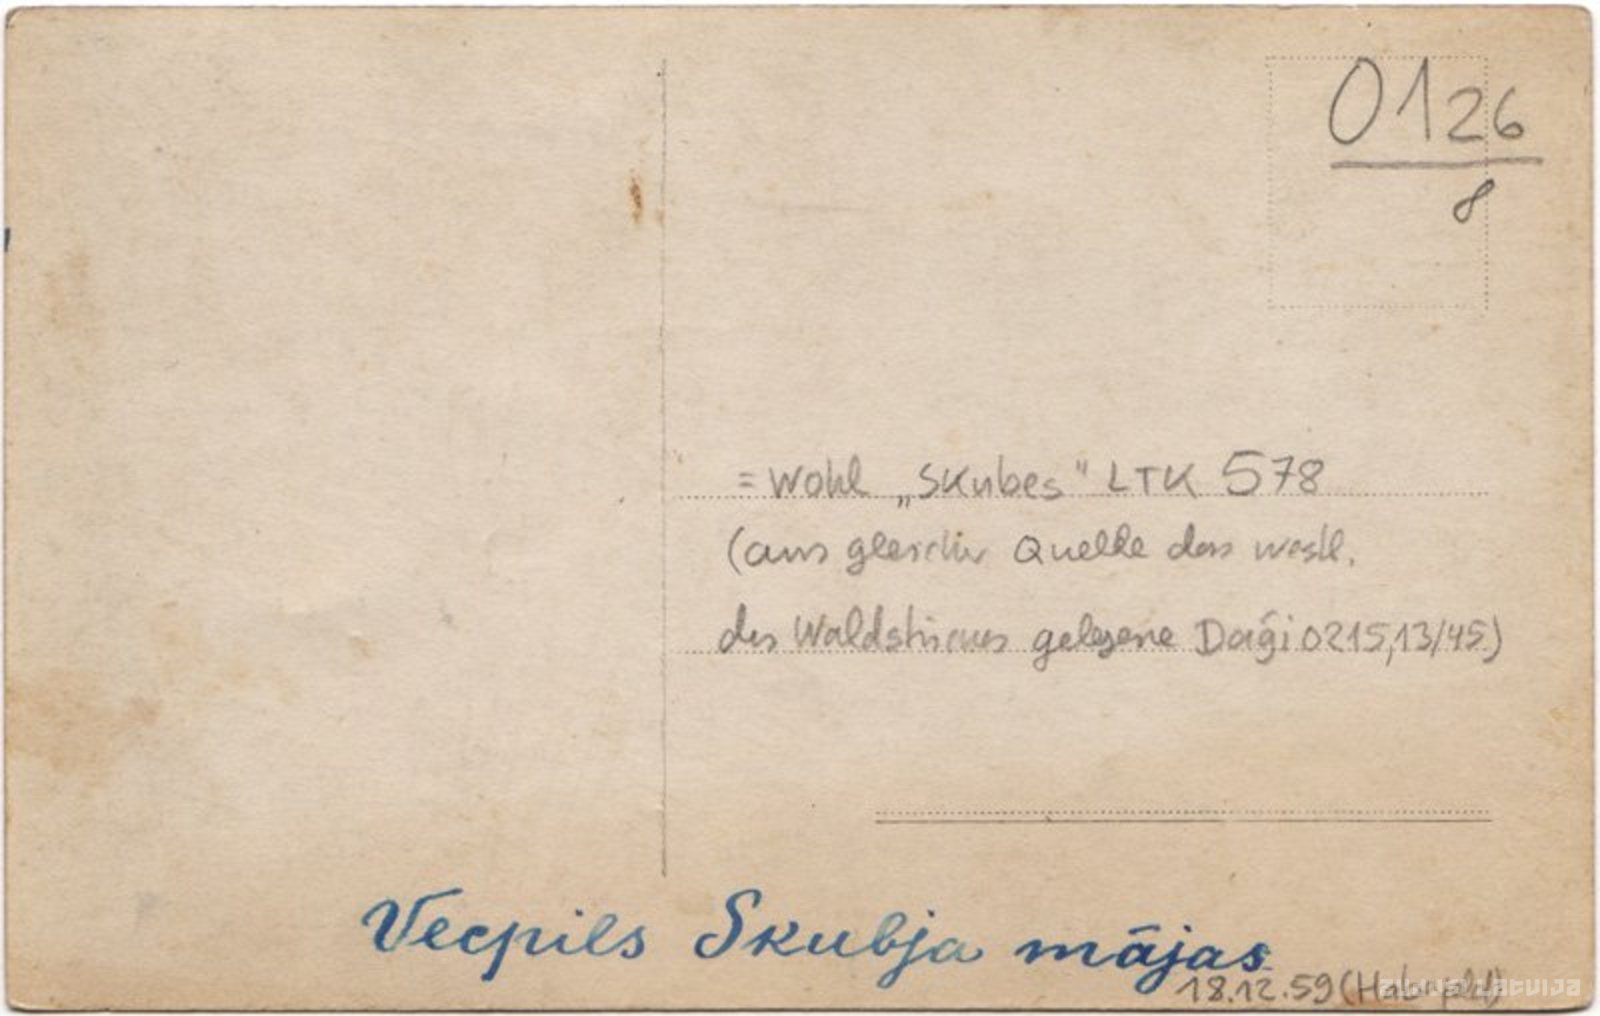 0126
8
= Wohl „Skubes“ LTK 578
(aus gleicher Quelle das westl.
des gelegene Daģi 0215,13/45)
Vecpils Skubja mājas
18.12.59